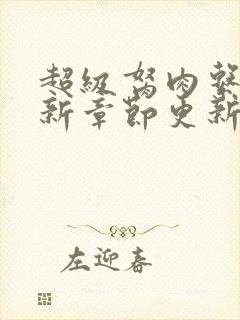 超级驽肉系
新章节更新
左迎春